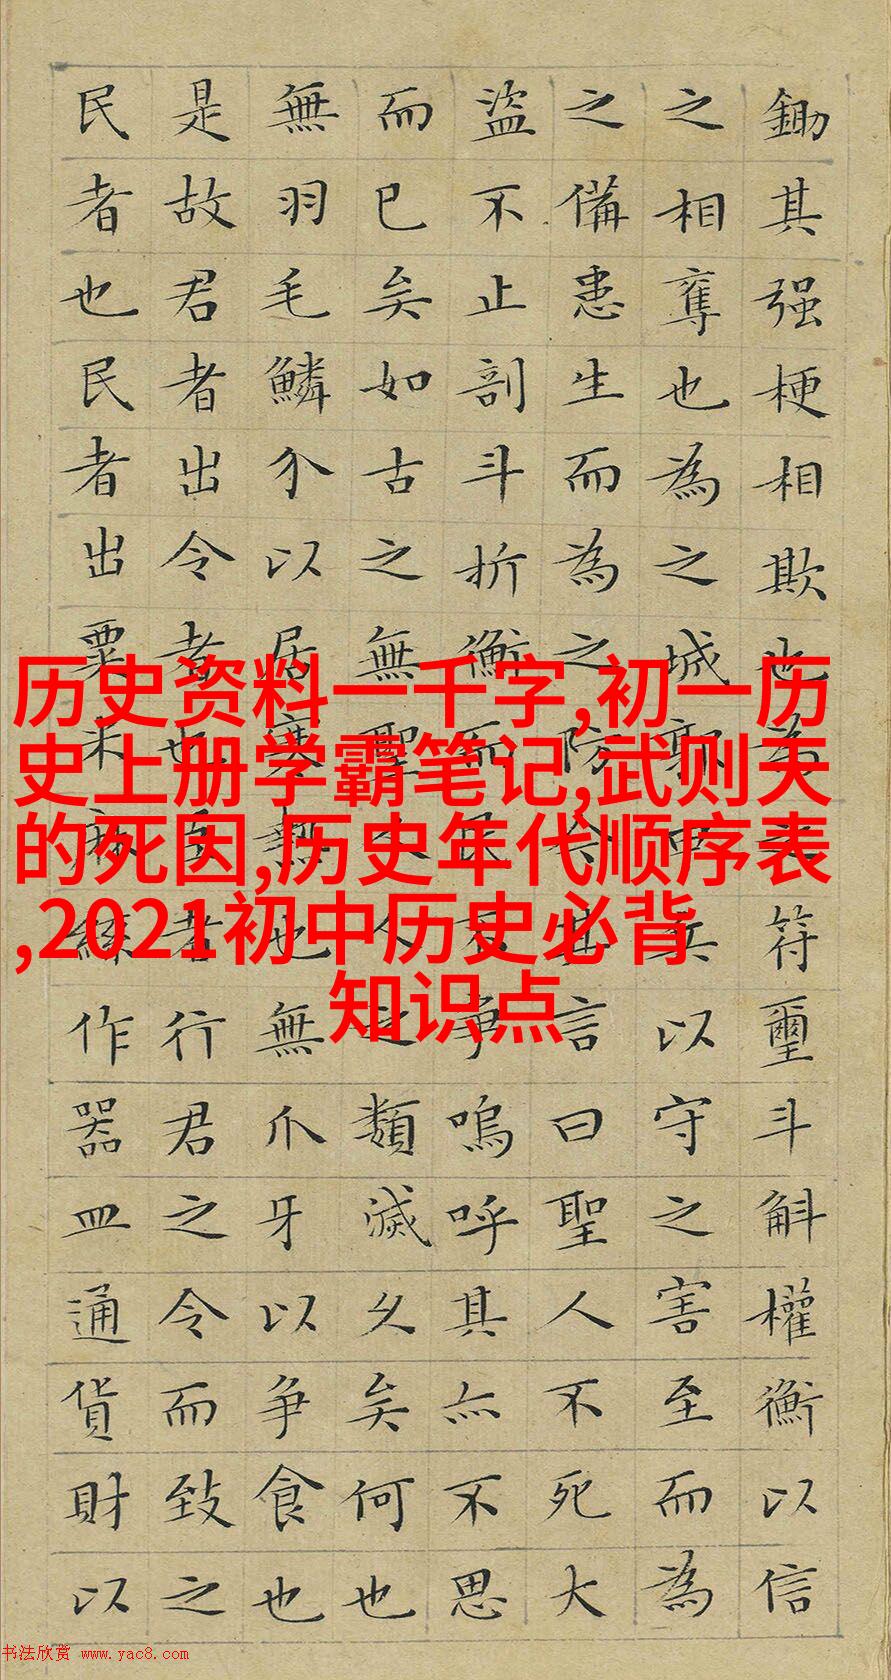 鋤其强梗相欺也為之符璽斗斛權衡以信
之相奪也為之城郭甲兵以守之害至而為
之備患生而為之防今其言曰聖人不死大
盜不止剖斗折衡而民不爭嗚呼其亦不思
而已矣如古之無聖人人之類滅久矣何也
無羽毛鱗介以居寒熱也無爪牙以爭食也
是故君者出令者也臣者行君之令而致之
民者也民者出粟米麻絲作器皿通貨財以
历史资料一千字,初一历
史上册学霸笔记,武则天
的死因,历史年代顺序表
,2021初中历史必背
知识点
书法欣赏 www.yac8.com